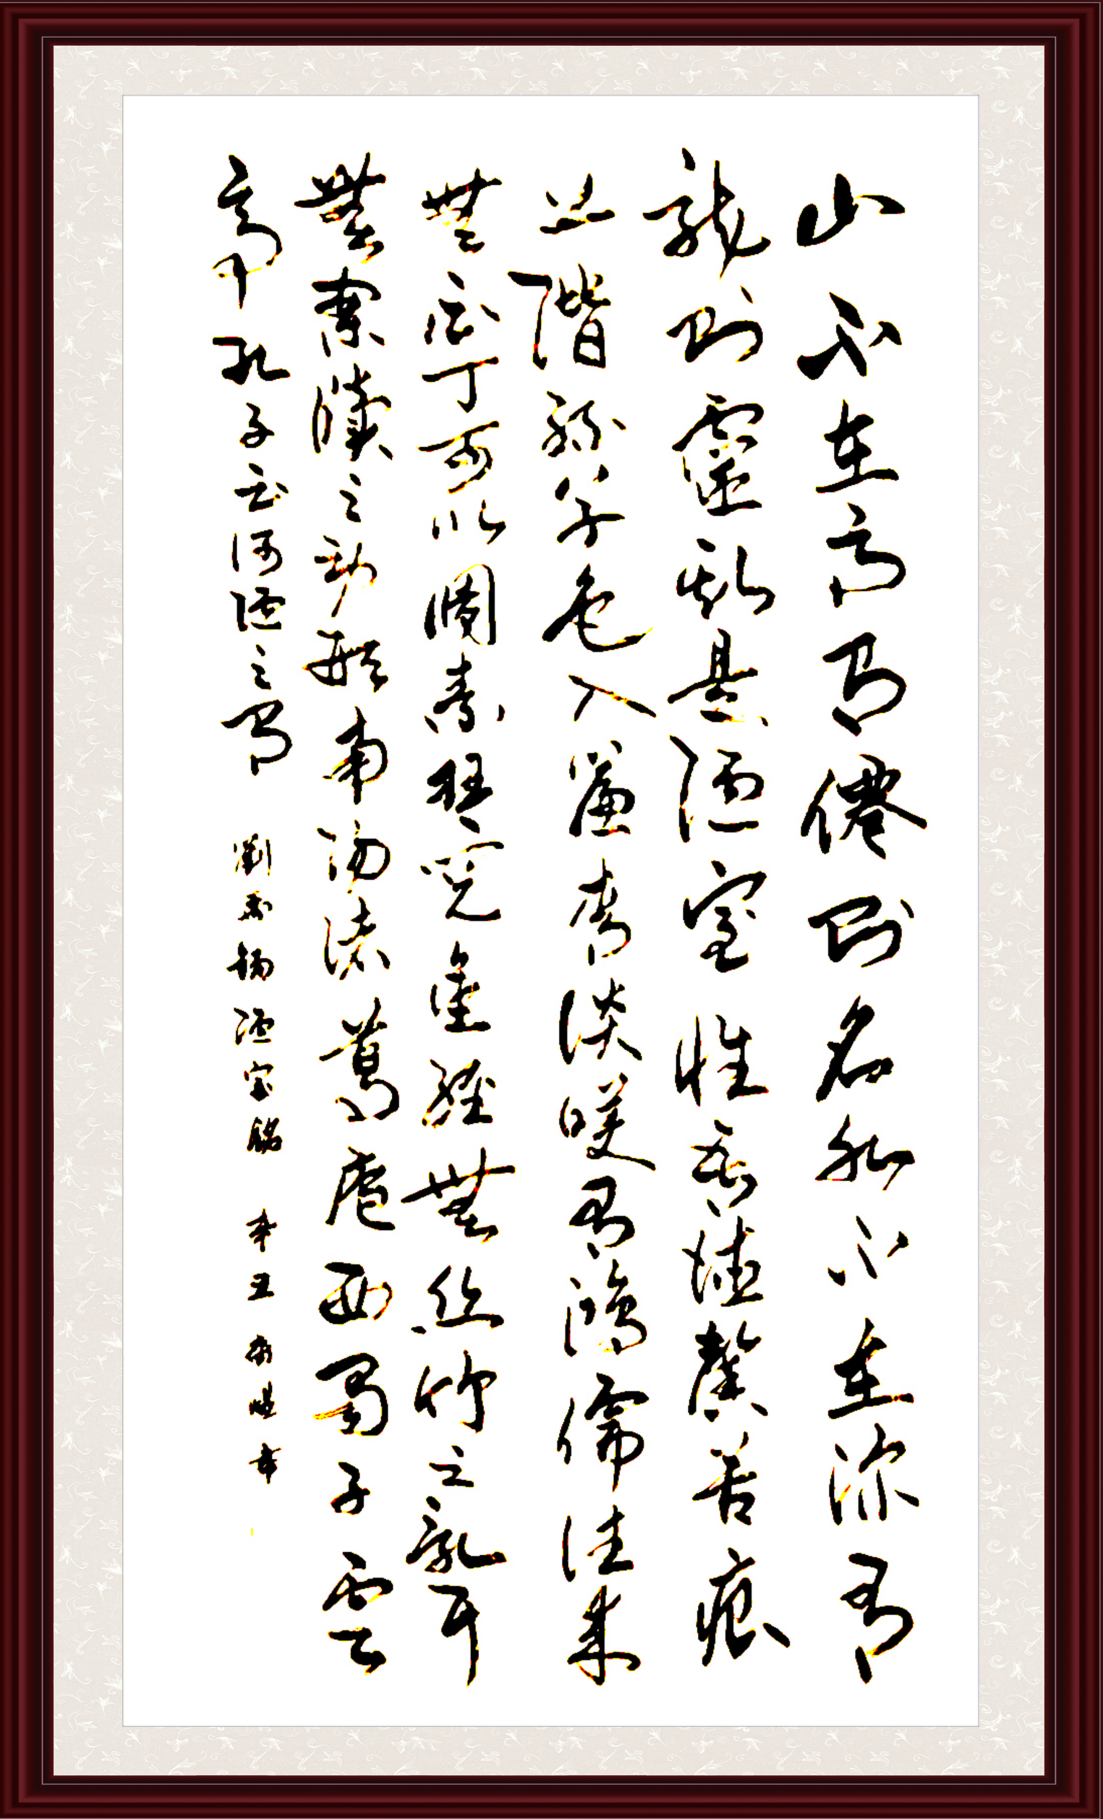 山不在高有僊則名水不在深有
龍則靈斯是陋室惟吾德馨苔痕
上階綠草色入簾青談咲有鴻儒往來
無白丁可以調素琴閱金經無絲竹之亂耳
無案牘之勞形南陽諸葛廬西蜀子雲
亭孔子云何陋之有 劉禹錫陋室銘 辛丑